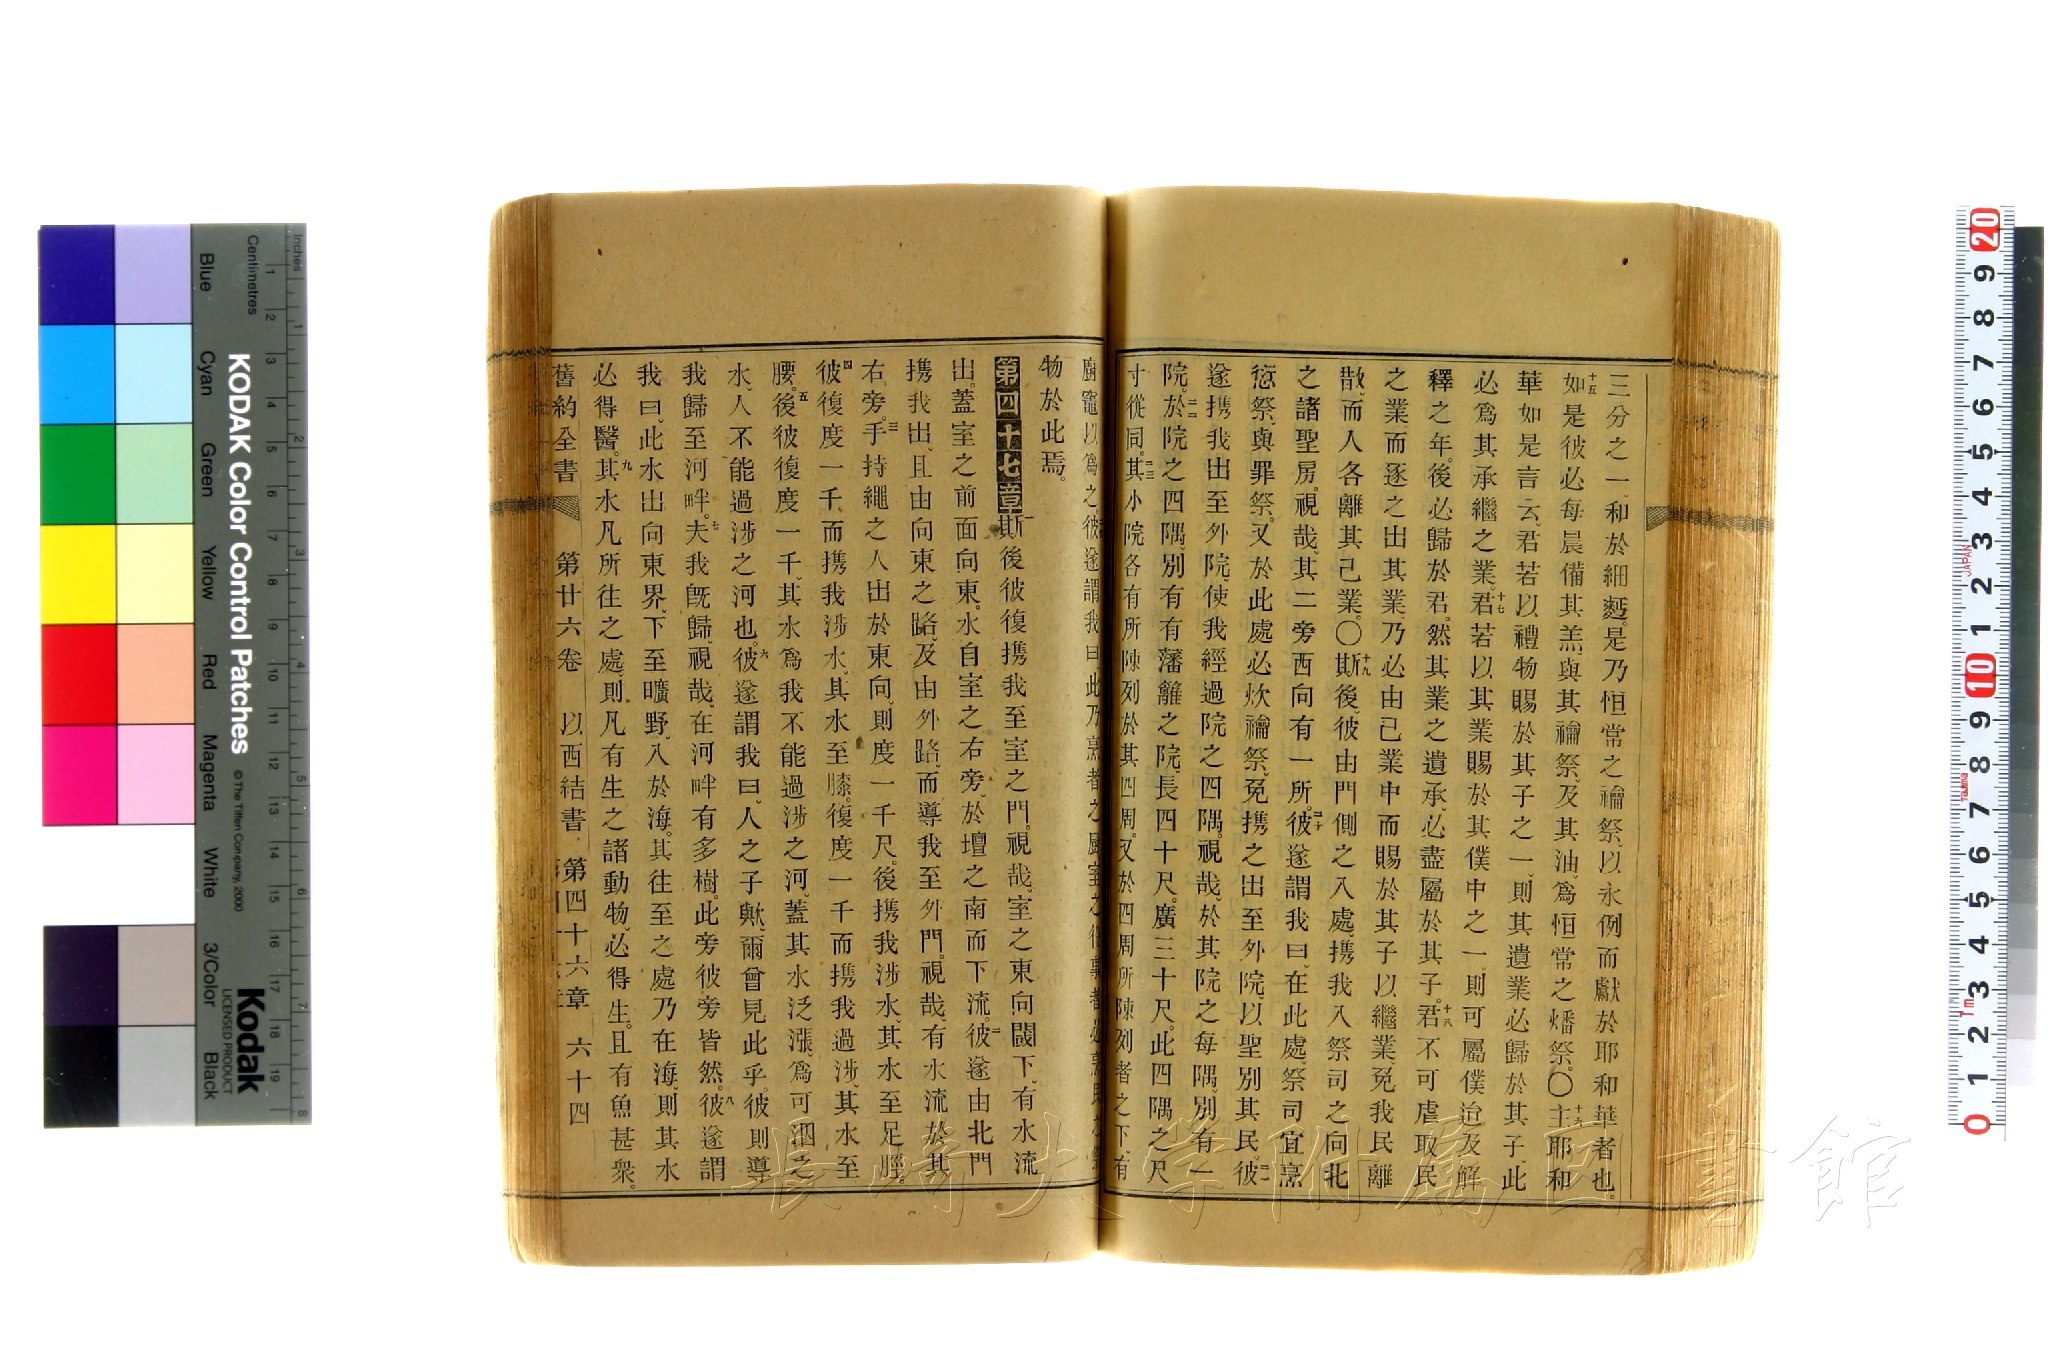 三分之一、和於細麪。是乃恒常之禴祭、以永例而獻於耶和華者也。
十五如是彼必每晨備其羔、與其禴祭、及其油、爲恒常之燔祭。〇十六主耶和
華如是言云、君若以禮物賜於其子之一、則其遺業必歸於其子、此
必爲其承繼之業。十七君若以其業賜於其僕中之一、則可屬僕迨及解
釋之年。後必歸於君。然其業之遺承、必盡屬於其子。十八君不可虐取民
之業、而逐之出其業、乃必由己業中而賜於其子以繼業、免我民離
散、而人各離其己業。〇十九斯後、彼由門側之入處、携我入祭司之向北
之諸聖房。視哉、其二旁西向有一所。二十彼遂謂我曰、在此處、祭司宜烹
愆祭、與罪祭。又於此處必炊禴祭、免携之出至外院、以聖別其民。二一彼
遂携我出至外院、使我經過院之四隅。視哉、於其院之每隅、別有一
院。二二於院之四隅、別有有藩籬之院、長四十尺。廣三十尺。此四隅之尺
寸從同。二三其小院各有所陳列於其四周。又於四周所陳列者之下、有
廚竈以爲之。彼遂謂我曰、此乃烹者之廚室、之
物於此焉。
第四十七章 一斯後彼復携我至室之門。視哉、室之東向閾下、有水流
出。蓋室之前面向東。水自室之右旁、於壇之南而下流。二彼遂由北門
携我出、且由向東之路、及由外路、而導我至外門。視哉、有水流於其
右旁。三手持繩之人出於東向、則度一千尺。後携我涉水、其水至足脛。
四彼復度一千、而携我涉水、其水至膝。復度一千而携我過涉、其水至
腰。五後彼復度一千、其水爲我不能過涉之河、蓋其水泛漲、爲可泅之
水、人不能過涉之河也。六彼遂謂我曰、人之子歟、爾曾見此乎。彼則導
我歸至河畔。七夫我旣歸、視哉、在河畔有多樹。此旁彼旁皆然。八彼遂謂
我曰、此水出向東界、下至曠野、入於海。其往至之處乃在海、則其水
必得醫。九其水凡所往之處、則凡有生之諸動物、必得生。且有魚甚衆。
舊約全書 第廿六卷 以西結書 第四十六章 六十四
長崎大学附属図書館
KODAK Color Control Patches
Blue Cyan Green Yellow Red Magenta White 3/Color Black
Inches
Centimetres
© The Tiffen Company, 2000
Kodak
LICENSED PRODUCT
1 2 3 4 5 6 7 8 9 10 11 12 13 14 15 16 17 18 19
1 2 3 4 5 6 7 8
20 9 8 7 6 5 4 3 2 1 10 9 8 7 6 5 4 3 2 1 0
JAPAN